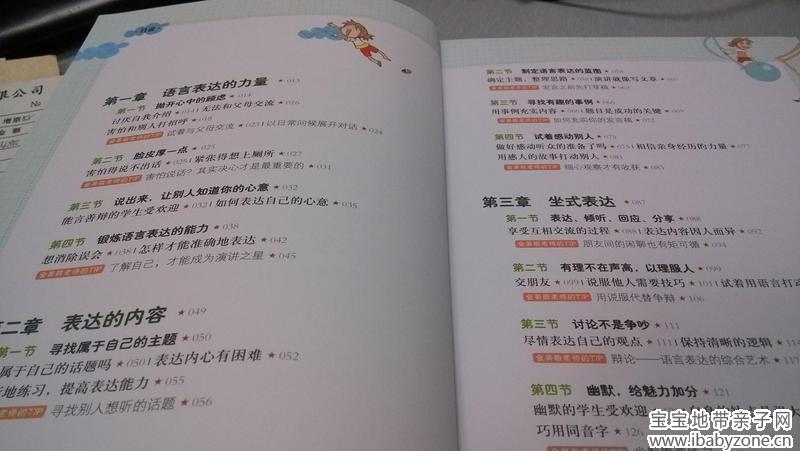 限公司
No
目录
第一章 语言表达的力量 ★ 013
第一节 抛开心中的顾虑 ★ 014
讨厌自我介绍 ★ 014 I 无法和父母交流 ★ 016
害怕和别人打招呼 ★ 018
金美敬老师的TIP 试着与父母交流 ★ 023 I 以日常问候展开对话 ★ 024
第二节 脸皮厚一点 ★ 025
害怕得说不出话 ★ 025 I 紧张得想上厕所 ★ 027
金美敬老师的TIP 害怕说话？其实决心才是最重要的 ★ 031
第三节 说出来，让别人知道你的心意 ★ 032
能言善辩的学生受欢迎 ★ 032 I 如何表达自己的心意 ★ 035
第四节 锻炼语言表达的能力 ★ 038
想消除误会 ★ 038 I 怎样才能准确地表达 ★ 042
金美敬老师的TIP 了解自己，才能成为演讲之星 ★ 045
二章 表达的内容 ★ 049
第一节 寻找属于自己的主题 ★ 050
属于自己的话题吗 ★ 050 I 表达内心有困难 ★ 052
地练习，提高表达能力 ★ 055
金美敬老师的TIP 寻找别人想听的话题 ★ 056
第二节 制定语言表达的蓝图 ★ 058
确定主题，整理思路 ★ 058 I 演讲就像写文章 ★ 060
金美敬老师的TIP 发言之前先打草稿 ★ 063
第三节 寻找有趣的事例 ★ 066
用事例充实内容 ★ 066 I 题目是成功的关键 ★ 069
金美敬老师的TIP 如何充实你的发言稿 ★ 072
第四节 试着感动别人 ★ 075
做好感动听众的准备了吗 ★ 075 I 相信亲身经历的力量 ★ 077
用感人的故事打动别人 ★ 081
金美敬老师的TIP 细心观察才有收获 ★ 083
第三章 坐式表达 ★ 087
第一节 表达、倾听、回应、分享 ★ 088
享受互相交流的过程 ★ 088 I 表达内容因人而异 ★ 092
金美敬老师的TIP 朋友间的闲聊也有矩可循 ★ 094
第二节 有理不在声高，以理服人 ★ 099
交朋友 ★ 099 I 说服他人需要技巧 ★ 101 I 试着用语言打动
金美敬老师的TIP 用说服代替争辩 ★ 106
第三节 讨论不是争吵 ★ 111
尽情表达自己的观点 ★ 111 I 保持清晰的逻辑 ★ 114
金美敬老师的TIP 辩论——语言表达的综合艺术 ★ 117
第四节 幽默，给魅力加分 ★ 121
幽默的学生受欢迎
巧用同音字 ★ 126
宝宝地带亲子网
www.ibabyzone.cn